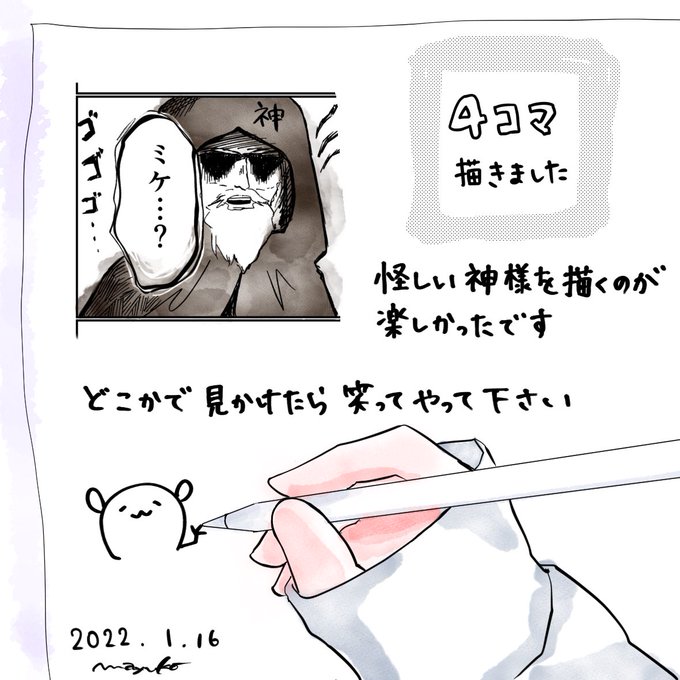 4コマ
描きました
神
ミケ…？
ゴゴゴ…
怪しい神様を描くのが
楽しかったです
どこかで見かけたら笑ってやって下さい
2022.1.16